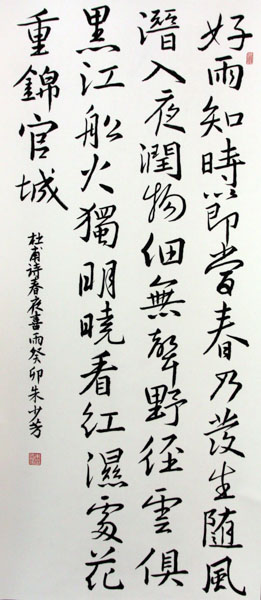 好雨知時節當春乃發生隨風
潛入夜潤物細無聲野徑雲俱
黑江船火獨明曉看紅濕處花
重錦官城
杜甫诗春夜喜雨癸卯朱少芳